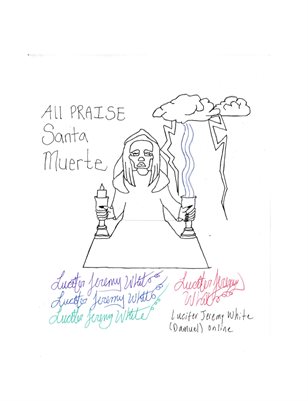 All PRAISE
Santa
Muerte
Lucifer Jeremy White
Lucifer Jeremy White
Lucifer Jeremy White
Lucifer Jeremy
White
Lucifer Jeremy White
(Damuel) online